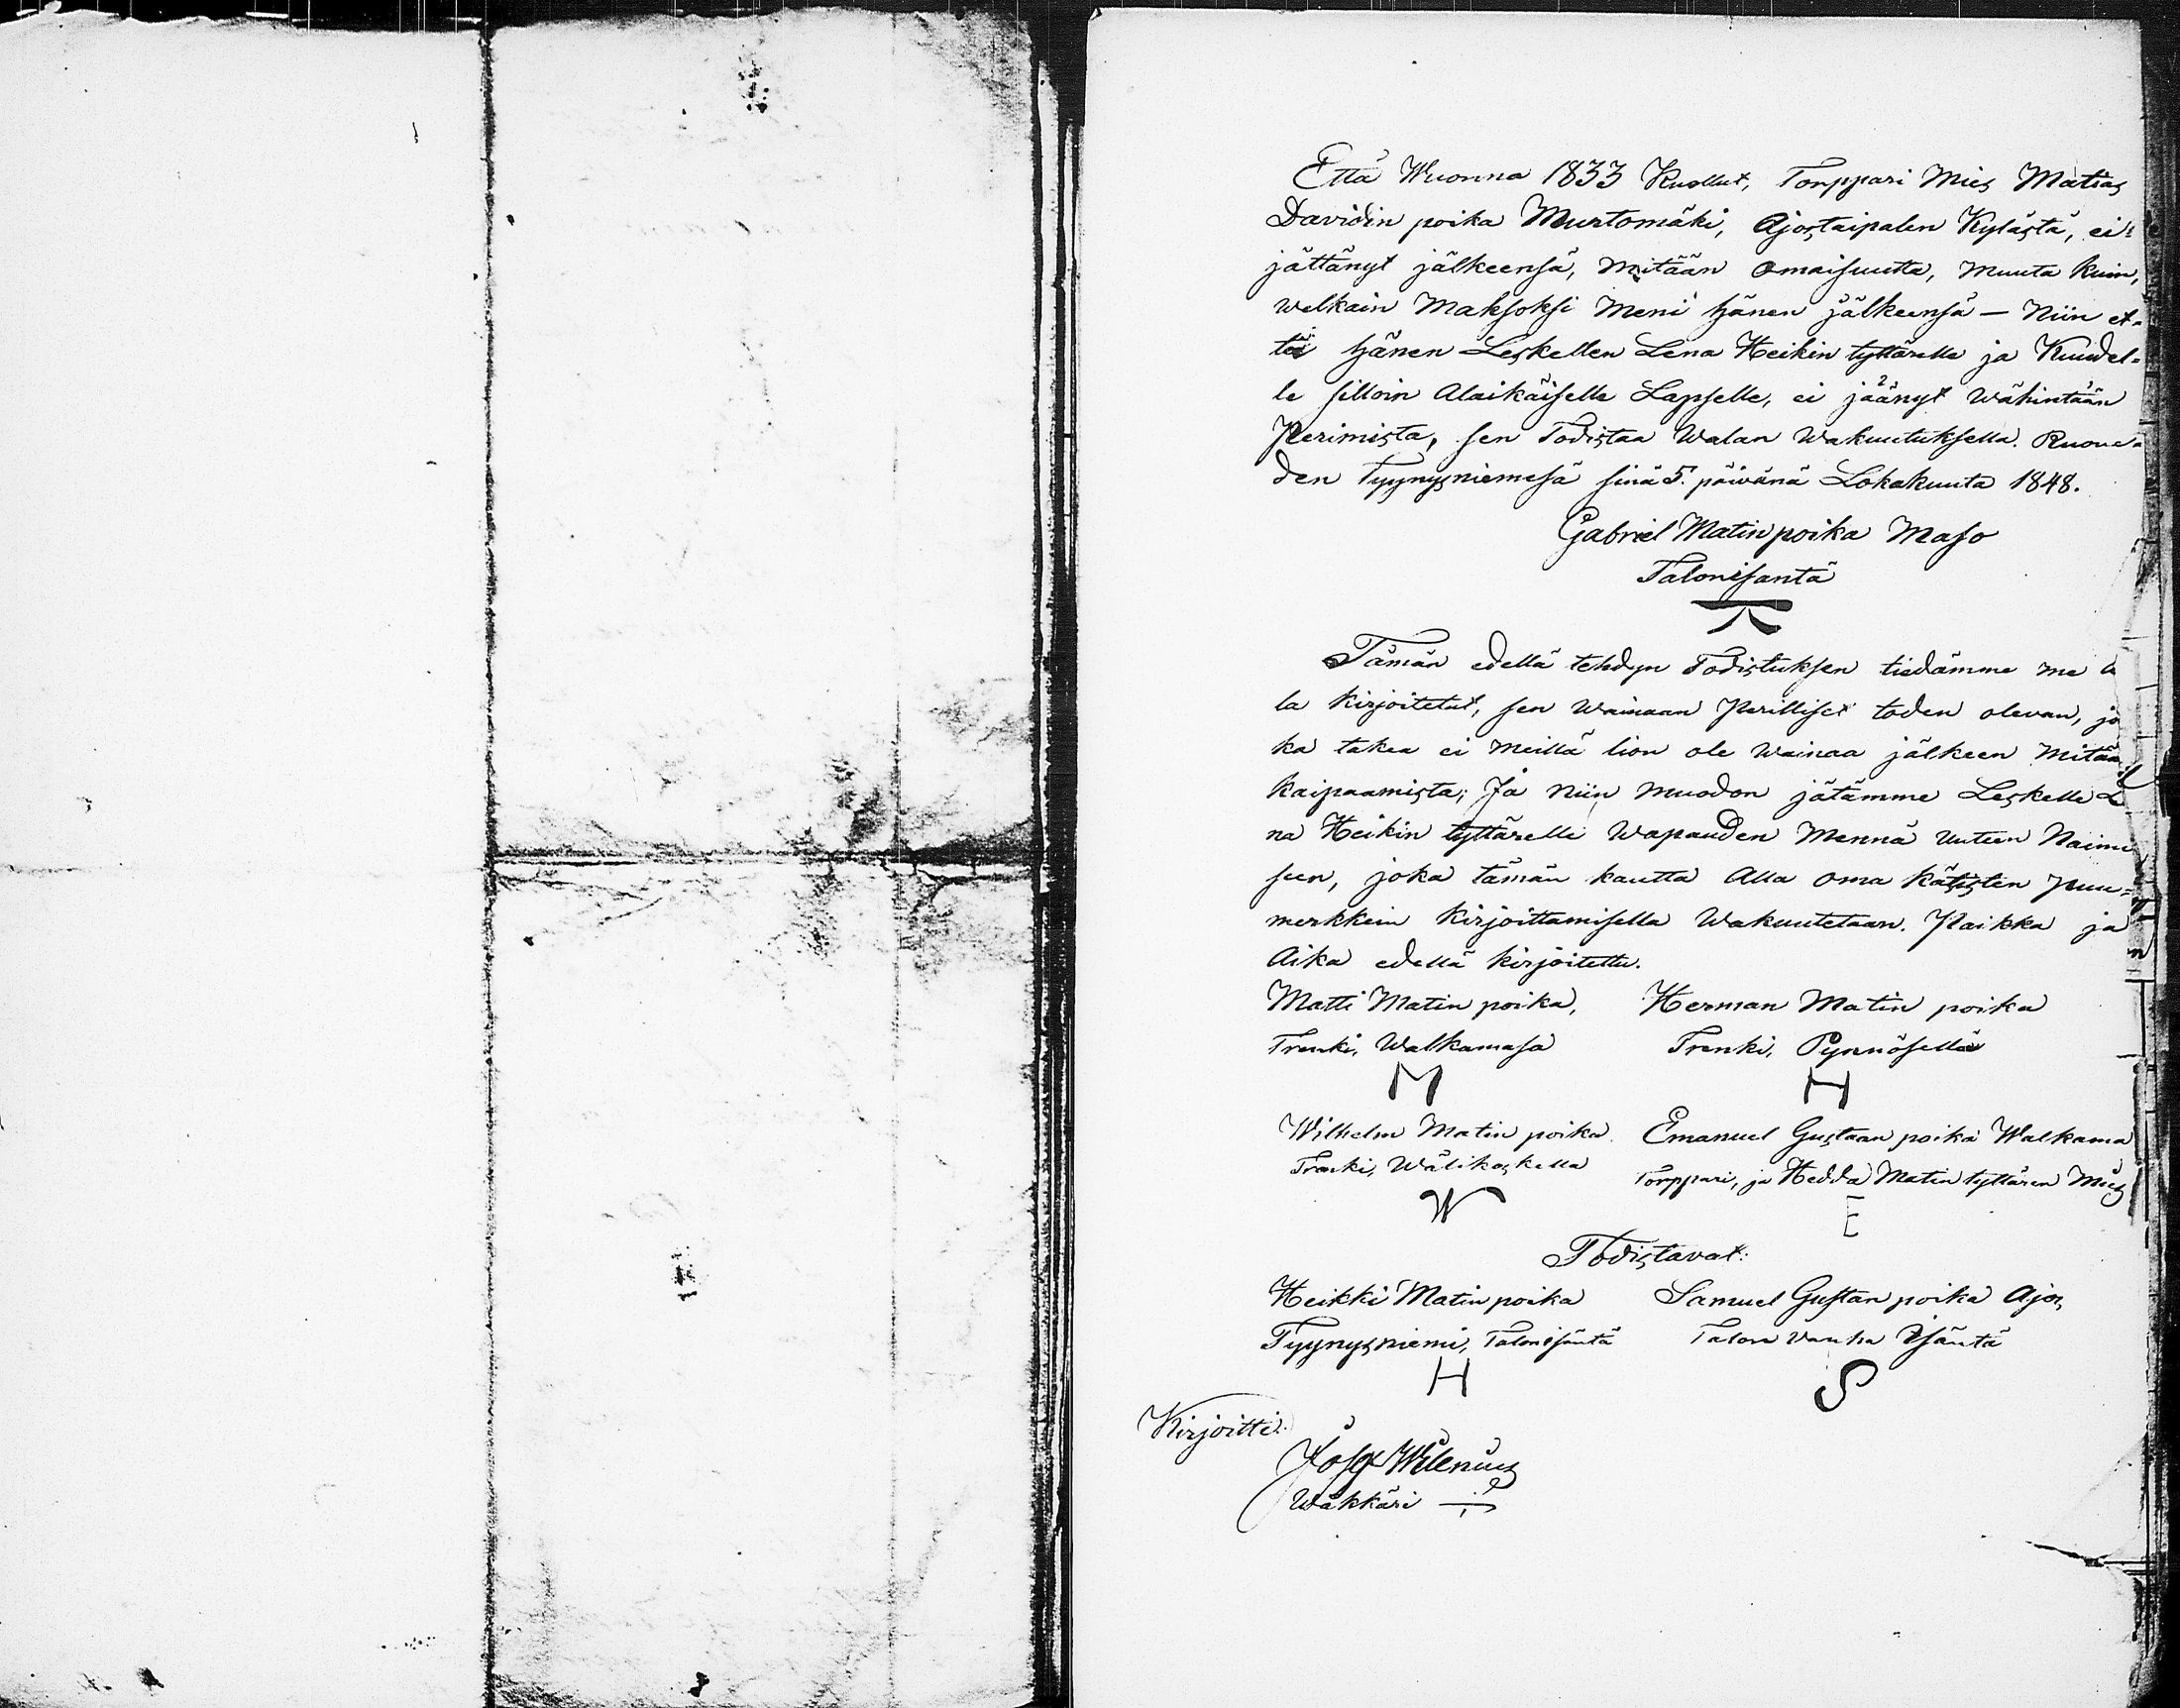 Että Wuonna 1833 Kuollut, Torppari Mies Matias
Davidin poika Murtomäki, Ajostaipalen Kylästä, ei
jättänyt jälkeensä, mitään omaisuutta, muuta kuin,
welkain Maksoksi meni hänen jälkeensä — Niin et-
tä hänen Leskellen Lena Heikin tyttärelle ja Kuudel-
le silloin Alaikäiselle Lapselle, ei jäänyt wähintään
Perimistä, sen Todistaa Walan Wakuutuksella. Ruowe-
den Tyynysniemesä sinä 5. päiwänä Lokakuuta 1848.
Gabriel Matin poika Maso
Talonisäntä
Tämän edellä tehdyn Todistuksen tiedämme me
la kirjoitetut, sen Wainaan Perilliset toden olevan, jo
ka takea ei meillä lion ole Wainaa jälkeen mitää
kaipaamista; Ja niin muodon jätämme Leskelle Le
na Heikin tyttärelle Wapauden Mennä uuteen Naimi
seen, joka tämän kautta Alla oma kätisten puu-
merkkein kirjoittamisella Wakuutetaan. Paikka ja
Aika edellä kirjoitettu.
Matti Matin poika, Herman Matin poika
Trenki, Walkamasa Trenki, Pynnösellä
M H
Wilhelm Matin poika Emanuel Gustaan poika Walkama
Trenki, Wälikoskella Torppari, ja Hedda Matin tyttären Mies
W E
Todistavat:
Heikki Matin poika Samuel Gustan poika Ajos
Tyynysniemi, Talonisäntä Talon vanha Isäntä
H S
Kirjoitti:
Josef Wilenius
Wäkkäri